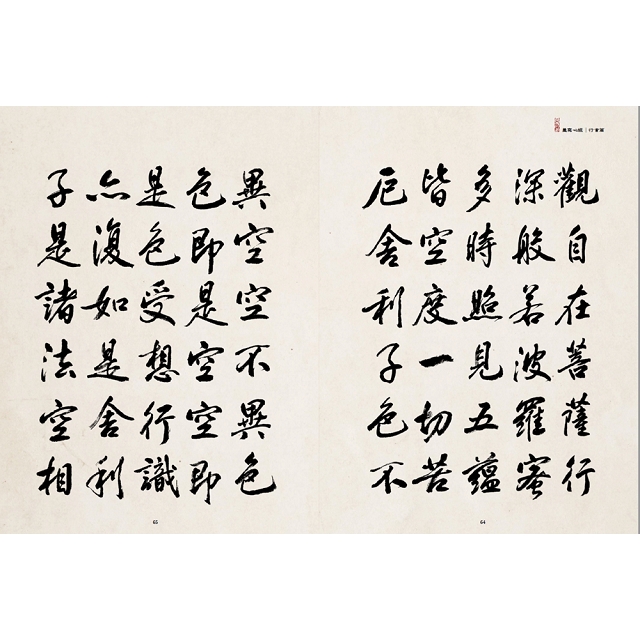 寫心經｜行書篇
觀自在菩薩行
深般若波羅蜜
多時照見五蘊
皆空度一切苦
厄舍利子色不
64
異空空不異色
色即是空空即
是色受想行識
亦復如是舍利
子是諸法空相
65